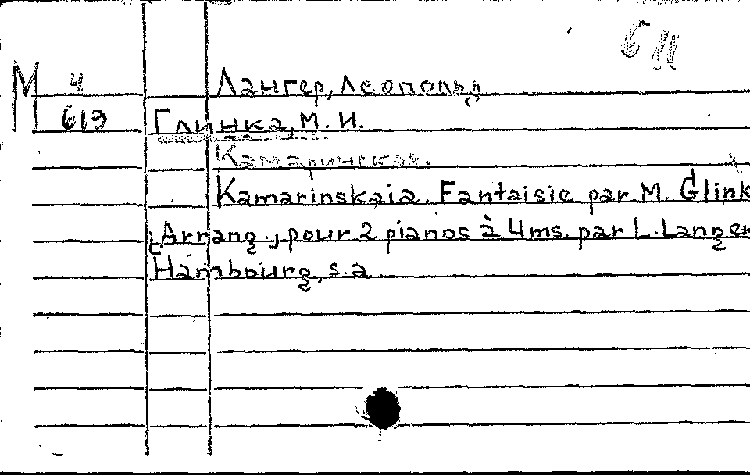 М 4 Лангер, Леопольд
619 Глинка, М. И.
Камаринская.
Kamarinskaia. Fantaisie par M. Glink
[Arrang., pour 2 pianos à 4 ms. par L. Langer
Hambourg, s. a.